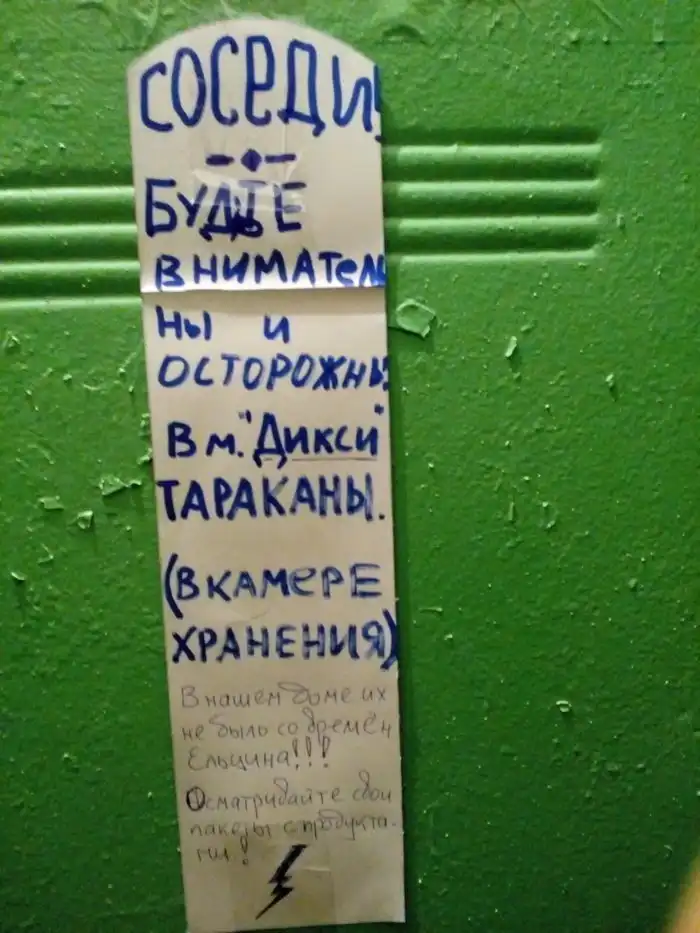 СОСЕДИ!
БУДТЕ
ВНИМАТЕЛЬ
НЫ И
ОСТОРОЖНЫ:
В м. "Дикси"
ТАРАКАНЫ.
(В КАМЕРЕ
ХРАНЕНИЯ)
В нашем доме их
не было со времён
Ельцина!!!
Осматривайте свои
пакеты с продукта-
ми!